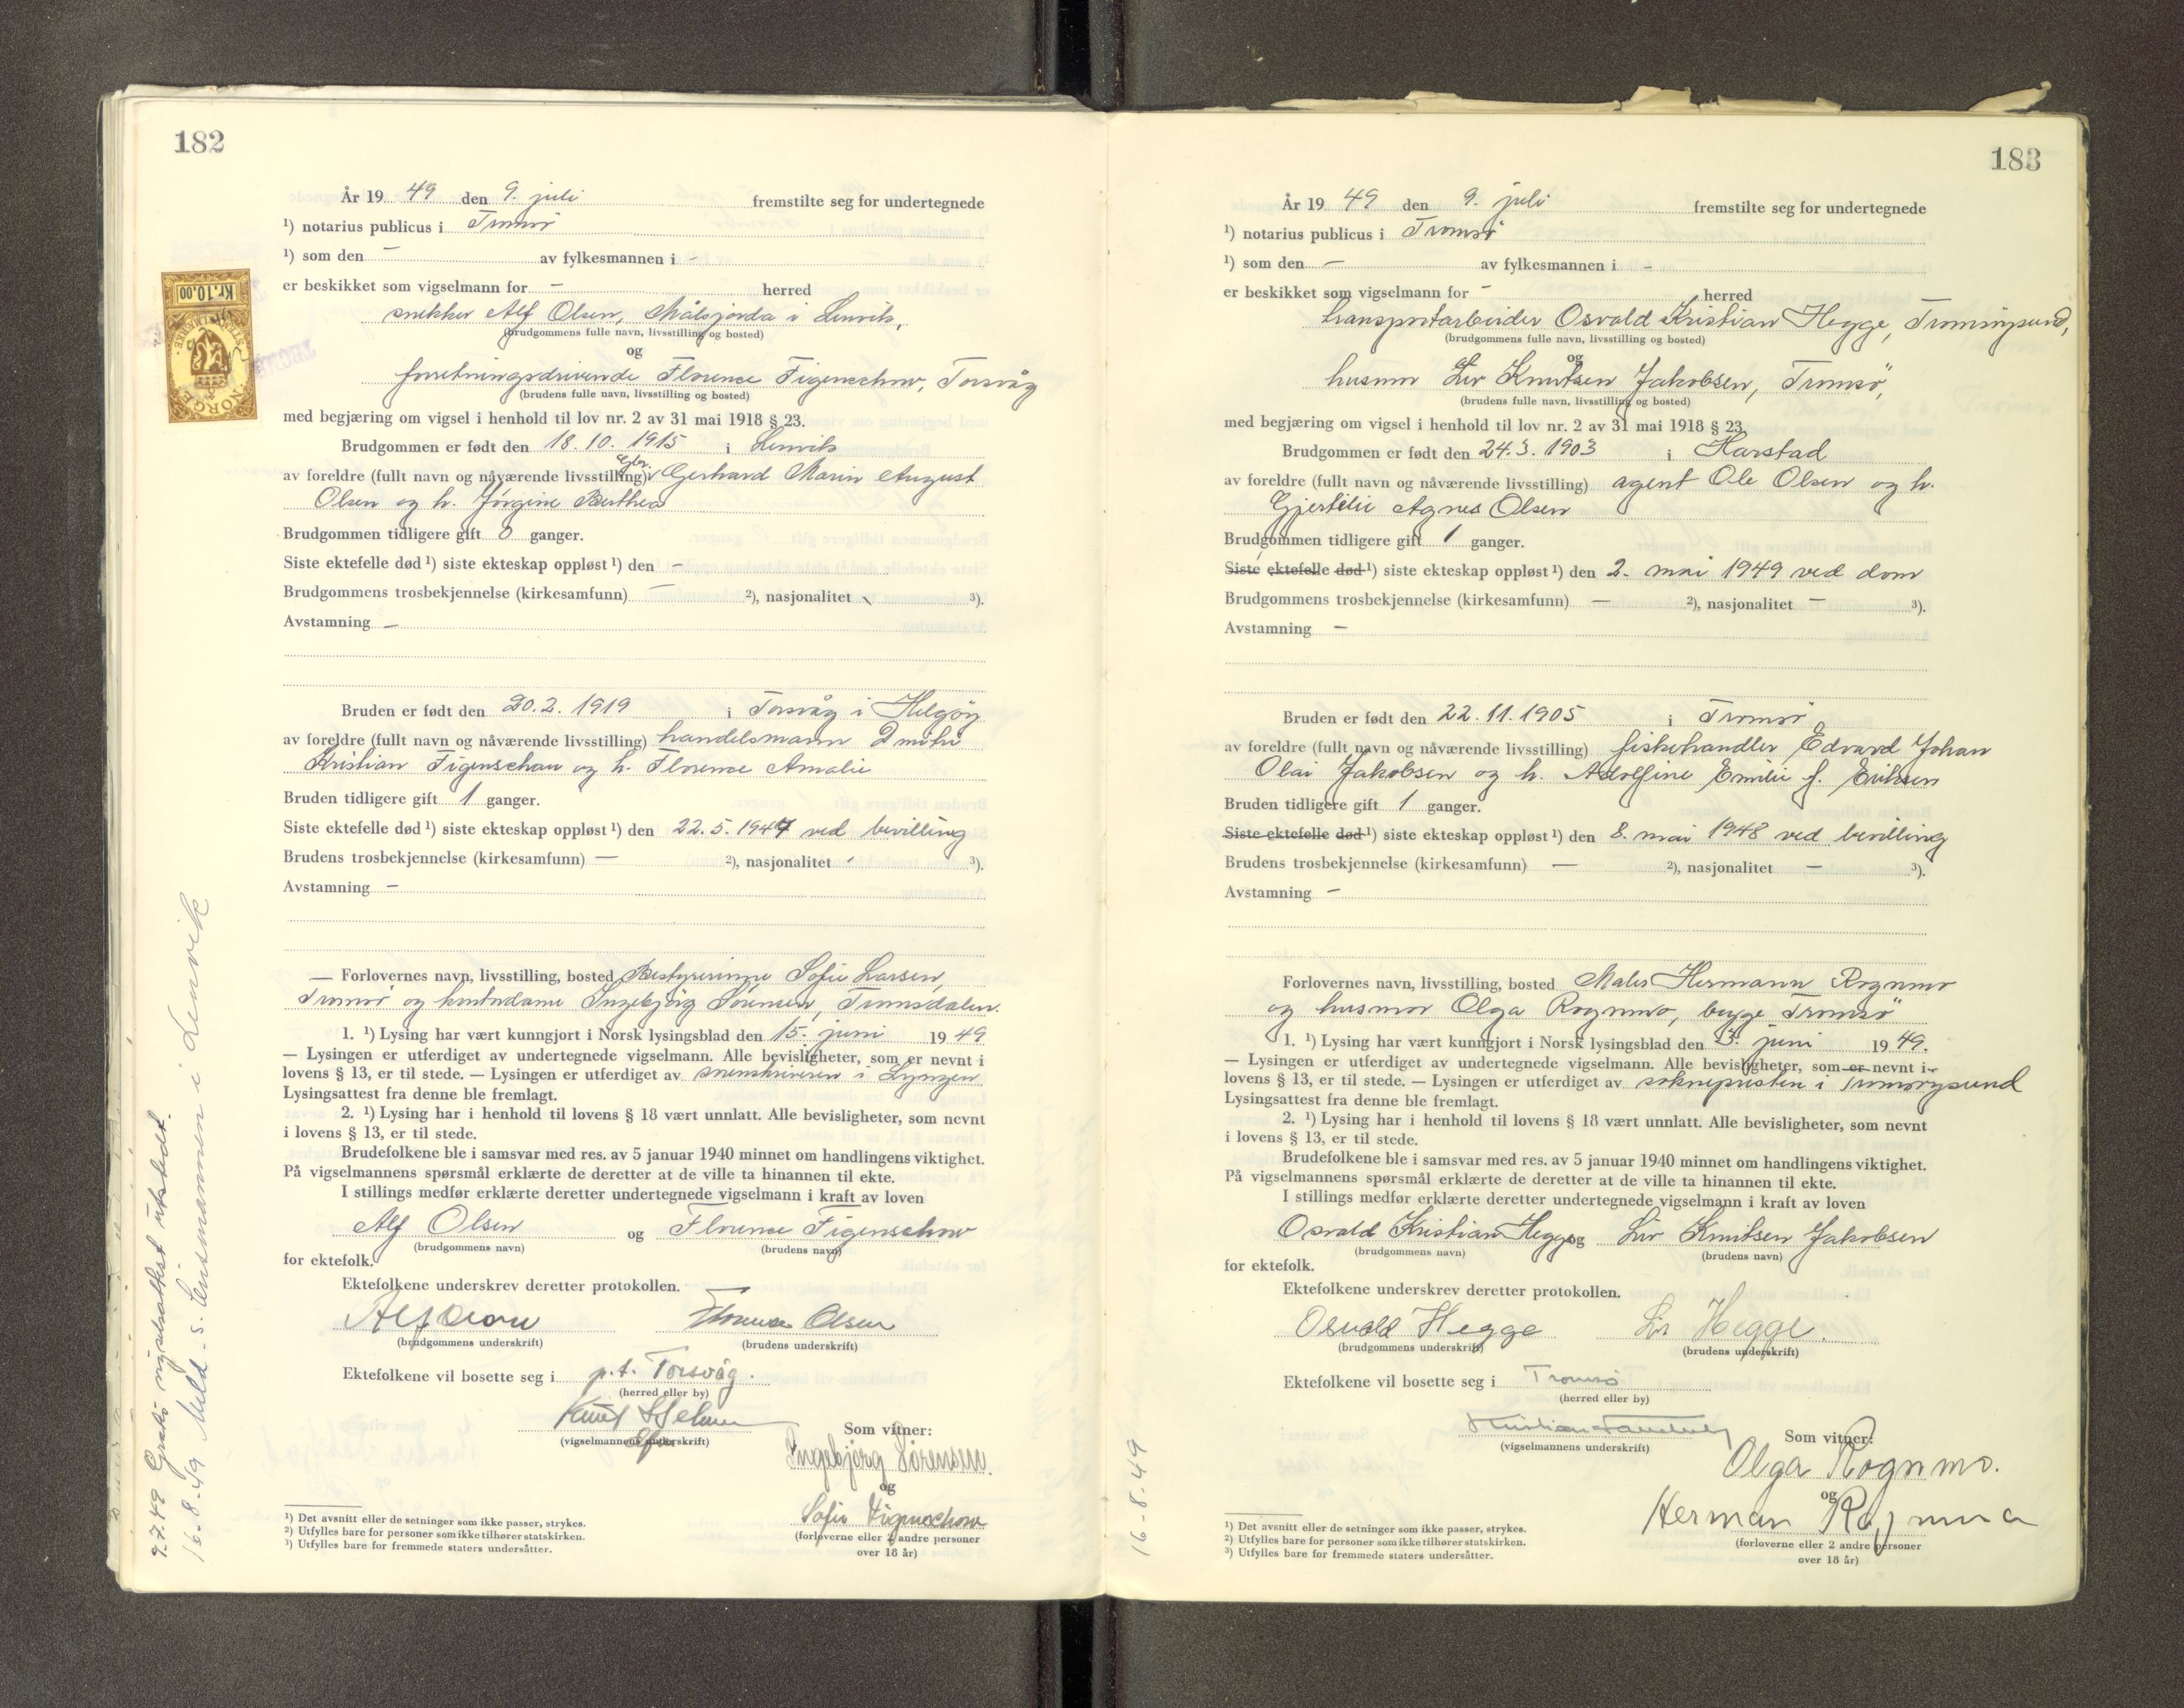 182
År 19 49 den 9. juli fremstilte seg for undertegnede
¹) notarius publicus i Tromsö
¹) som den — av fylkesmannen i -
er beskikket som vigselmann for — herred
snekker Alf Olsen, Målsjorda i Lenvik,
(brudgommens fulle navn, livsstilling og bosted)
og
forretningsdrivende Florence Figenschow, Torsvåg
(brudens fulle navn, livsstilling og bosted)
med begjæring om vigsel i henhold til lov nr. 2 av 31 mai 1918 § 23.
Brudgommen er født den 18.10.1915 i Lenvik
av foreldre (fullt navn og nåværende livsstilling) Gbr. Gerhard Marin August
Olsen og h. Jörgine Berthea
Brudgommen tidligere gift 0 ganger.
Siste ektefelle død ¹) siste ekteskap oppløst ¹) den —
Brudgommens trosbekjennelse (kirkesamfunn) — ²), nasjonalitet ³).
Avstamning —
Bruden er født den 20.2.1919 i Torsvåg i Helgöy
av foreldre (fullt navn og nåværende livsstilling) handelsmann Dmitri
Kristian Figenschau og h. Florence Amalie
Bruden tidligere gift 1 ganger.
Siste ektefelle død ¹) siste ekteskap oppløst ¹) den 22.5.1947 ved bevilling
Brudens trosbekjennelse (kirkesamfunn) — ²), nasjonalitet - ³).
Avstamning —
— Forlovernes navn, livsstilling, bosted Bestyrerinne Sofie Larsen,
Tromsö og kontordame Ingebjörg Sörensen, Tromsdalen.
1. ¹) Lysing har vært kunngjort i Norsk lysingsblad den 15. juni 19 49
— Lysingen er utferdiget av undertegnede vigselmann. Alle bevisligheter, som er nevnt i
lovens § 13, er til stede. — Lysingen er utferdiget av sorenskriveren i Lyngen
Lysingsattest fra denne ble fremlagt.
2. ¹) Lysing har i henhold til lovens § 18 vært unnlatt. Alle bevisligheter, som nevnt
i lovens § 13, er til stede.
Brudefolkene ble i samsvar med res. av 5 januar 1940 minnet om handlingens viktighet.
På vigselmannens spørsmål erklærte de deretter at de ville ta hinannen til ekte.
I stillings medfør erklærte deretter undertegnede vigselmann i kraft av loven
Alf Olsen og Florence Figenschow
(brudgommens navn) (brudens navn)
for ektefolk.
Ektefolkene underskrev deretter protokollen.
Alf Olsen Florence Olsen
(brudgommens underskrift) (brudens underskrift)
Ektefolkene vil bosette seg i p.t. Torsvåg.
(herred eller by)
(vigselmannens underskrift)
Som vitner:
Ingebjörg Sörensen.
og
Sofie Figenschow
(forloverne eller 2 andre personer
over 18 år)
¹) Det avsnitt eller de setninger som ikke passer, strykes.
²) Utfylles bare for personer som ikke tilhører statskirken.
³) Utfylles bare for fremmede staters undersåtter.
9.7.49 Gratis vigselsattest utstedt.
16-8-49 Meld. s. lensmannen i Lenvik
Kr.10,00
NORGE
183
År 19 49 den 9. juli fremstilte seg for undertegnede
¹) notarius publicus i Tromsö
¹) som den — av fylkesmannen i -
er beskikket som vigselmann for - herred
transportarbeider Osvald Kristian Hegge, Tromsöysund,
(brudgommens fulle navn, livsstilling og bosted)
og
husmor Liv Knutsen Jakobsen, Tromsö,
(brudens fulle navn, livsstilling og bosted)
med begjæring om vigsel i henhold til lov nr. 2 av 31 mai 1918 § 23.
Brudgommen er født den 24.3.1903 i Harstad
av foreldre (fullt navn og nåværende livsstilling) agent Ole Olsen og h.
Gjertelie Agnes Olsen
Brudgommen tidligere gift 1 ganger.
Siste ektefelle død ¹) siste ekteskap oppløst ¹) den 2. mai 1949 ved dom
Brudgommens trosbekjennelse (kirkesamfunn) — ²), nasjonalitet — ³).
Avstamning —
Bruden er født den 22.11.1905 i Tromsö
av foreldre (fullt navn og nåværende livsstilling) fiskehandler Edvard Johan
Olai Jakobsen og h. Adolfine Emilie f. Eriksen
Bruden tidligere gift 1 ganger.
Siste ektefelle død ¹) siste ekteskap oppløst ¹) den 8. mai 1948 ved bevilling
Brudens trosbekjennelse (kirkesamfunn) — ²), nasjonalitet — ³).
Avstamning —
Forlovernes navn, livsstilling, bosted Maler Hermann Rognmo
og husmor Olga Rognmo, begge Tromsö
1. ¹) Lysing har vært kunngjort i Norsk lysingsblad den juni 19 49.
— Lysingen er utferdiget av undertegnede vigselmann. Alle bevisligheter, som er nevnt i
lovens § 13, er til stede. — Lysingen er utferdiget av soknepresten i Tromsöysund
Lysingsattest fra denne ble fremlagt.
2. ¹) Lysing har i henhold til lovens § 18 vært unnlatt. Alle bevisligheter, som nevnt
i lovens § 13, er til stede.
Brudefolkene ble i samsvar med res. av 5 januar 1940 minnet om handlingens viktighet.
På vigselmannens spørsmål erklærte de deretter at de ville ta hinannen til ekte.
I stillings medfør erklærte deretter undertegnede vigselmann i kraft av loven
Osvald Kristian Hegge og Liv Knutsen Jakobsen
(brudgommens navn) (brudens navn)
for ektefolk.
Ektefolkene underskrev deretter protokollen.
Osvald Hegge Liv Hegge.
(brudgommens underskrift) (brudens underskrift)
Ektefolkene vil bosette seg i Tromsø
(herred eller by)
(vigselmannens underskrift)
Som vitner:
Olga Rognmo.
og
Herman Rognmo
(forloverne eller 2 andre personer
over 18 år)
¹) Det avsnitt eller de setninger som ikke passer, strykes.
²) Utfylles bare for personer som ikke tilhører statskirken.
³) Utfylles bare for fremmede staters undersåtter.
16-8-49